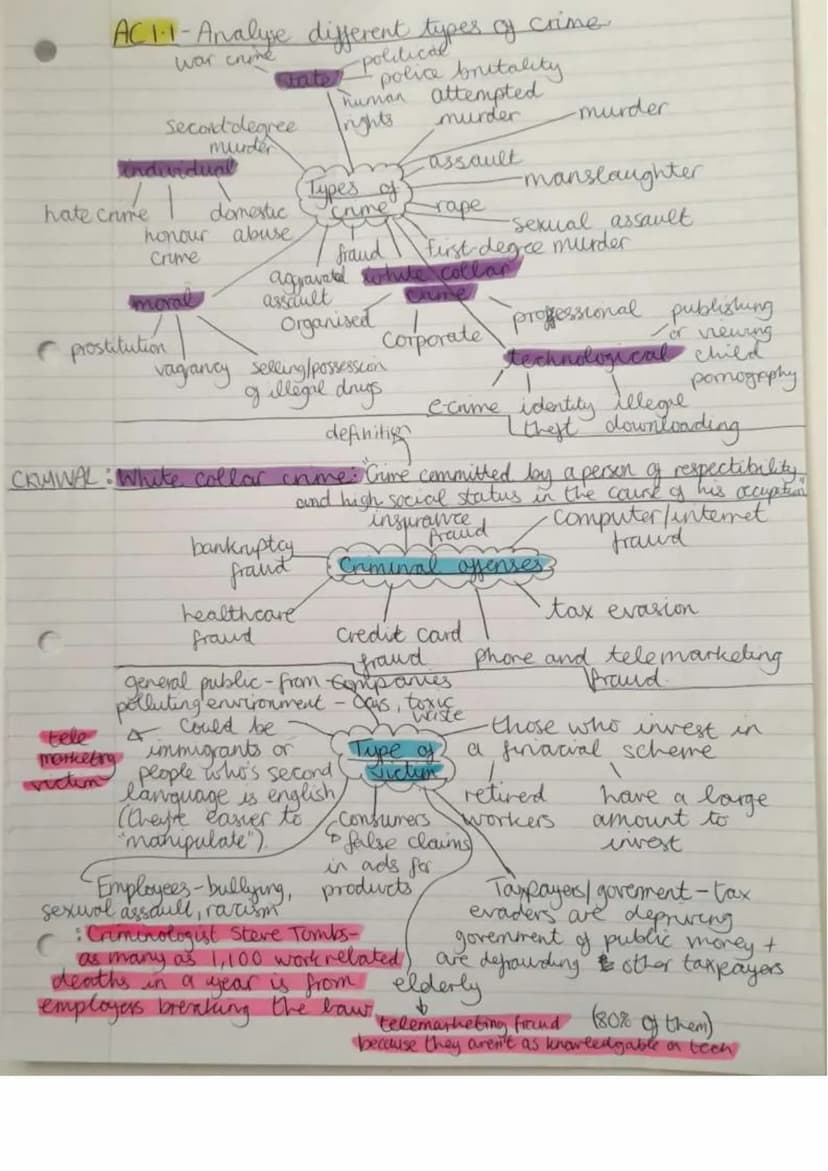 AC1.1 - Analyse different types of crime
war crime
political
state
police brutality
human rights
attempted murder
murder
second-degree murder
assault
individual
Types of crime
manslaughter
hate crime
honour crime
domestic abuse
rape
sexual assault
fraud
first-degree murder
aggravated assault
white collar crime
moral
Organised
corporate
professional
publishing or viewing child pornography
prostitution
vagancy
selling/possession of illegal drugs
technological
e-crime
identity theft
illegal downloading
definition
White collar crime: "Crime committed by a person of respectibility
and high social status in the course of his occuption"
insurance fraud
computer/internet fraud
bankruptcy fraud
Criminal offenses
healthcare fraud
credit card fraud
tax evasion
phone and telemarketing fraud
general public - from companies
polluting environment - toxic waste
tele marketing victim
could be
immigrants or
people who's second
language is english
(they're easier to
"manipulate").
Type of victim
those who invest in
a financial scheme
retired workers
have a large
amount to
invest
consumers
false claims
in ads for
products
Employees - bullying,
sexual assault, racism
: Criminologist Steve Tombs -
as many as 1,100 work related
deaths in a year is from
employers breaking the law
Taxpayers/goverment - tax
evaders are depriving
goverment of public money +
are defrauding other taxpayers
elderly
telemarketing fraud (80% of them)
because they aren't as knowledgable on tech